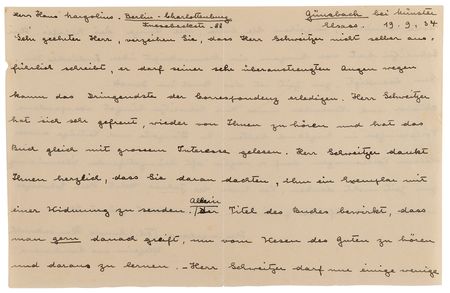 Herr Hans Margolius. Berlin-Charlottenburg Günsbach bei Münster
88 Elsass. 19.9.34.
Sehr geehrter Herr, verzeihen Sie, dass Herr Schweitzer nicht selber aus-
führlich schreibt, er darf seiner sehr überanstrengten Augen wegen
kaum das Dringendste der Correspondenz erledigen. Herr Schweitzer
hat sich sehr gefreut, wieder von Ihnen zu hören und hat das
Buch gleich mit grossem Interesse gelesen. Herr Schweitzer dankt
Ihnen herzlich, dass Sie daran dachten, ihm ein Exemplar mit
Allein
einer Widmung zu senden. Der Titel des Buches bewirkt, dass
man gern danach greift, um vom Wesen des Guten zu hören
und daraus zu lernen. – Herr Schweitzer darf nur einige wenige